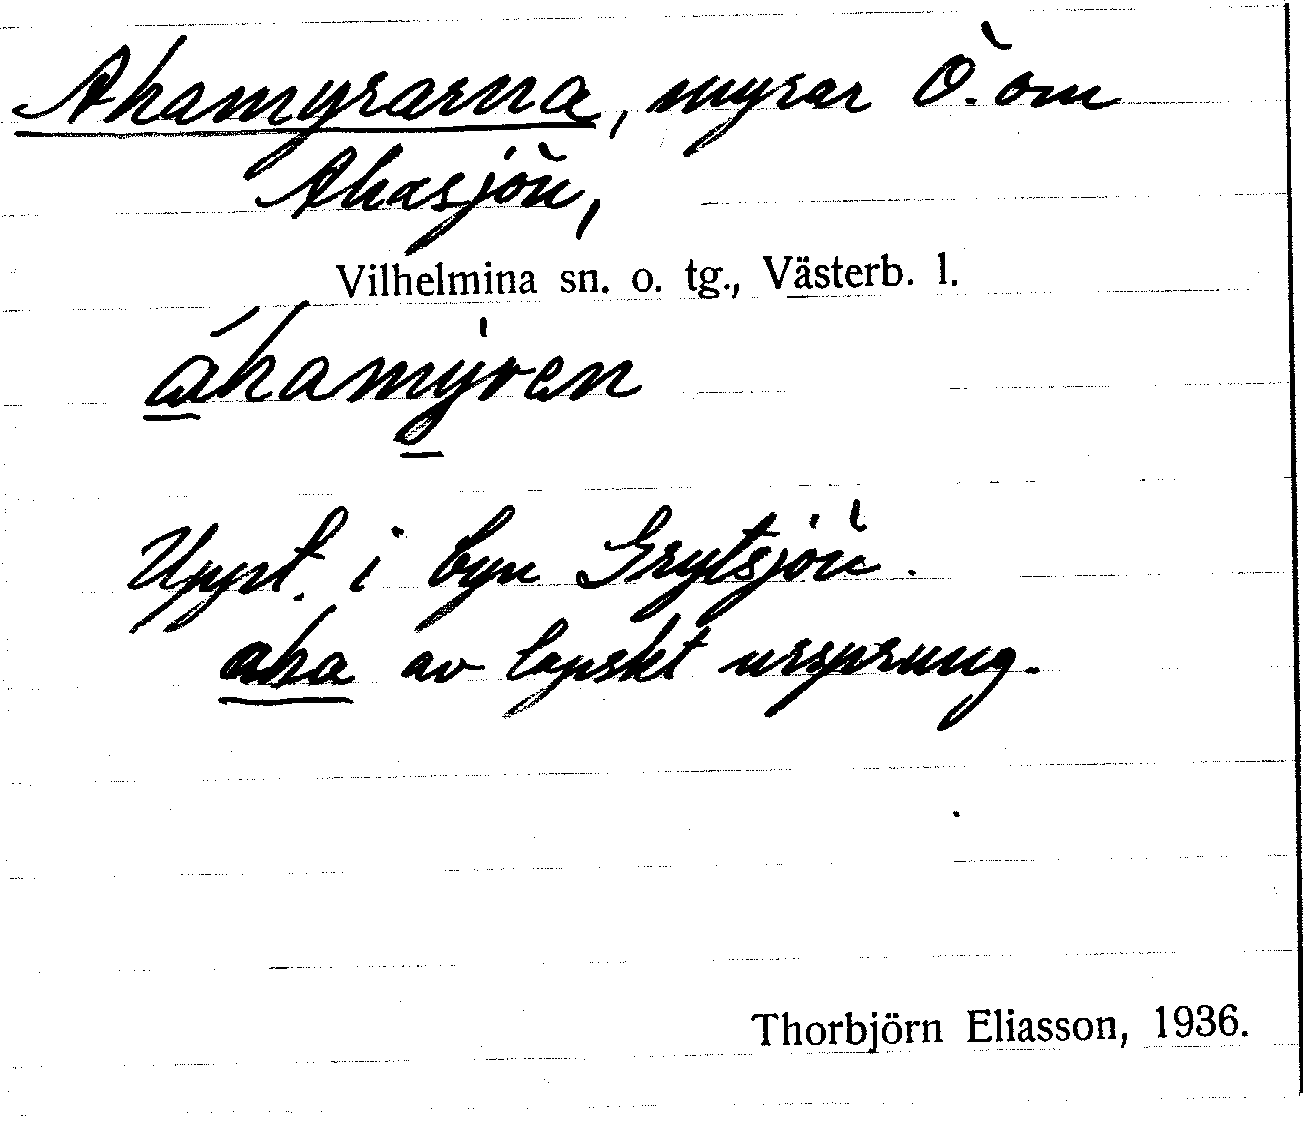 Ahamyrarna, myrar Ö. om
Ahasjön,
Vilhelmina sn. o. tg., Västerb. l.
áhamýren
Uppt. i byn Grytsjön.
aha av lapskt ursprung.
Thorbjörn Eliasson, 1936.